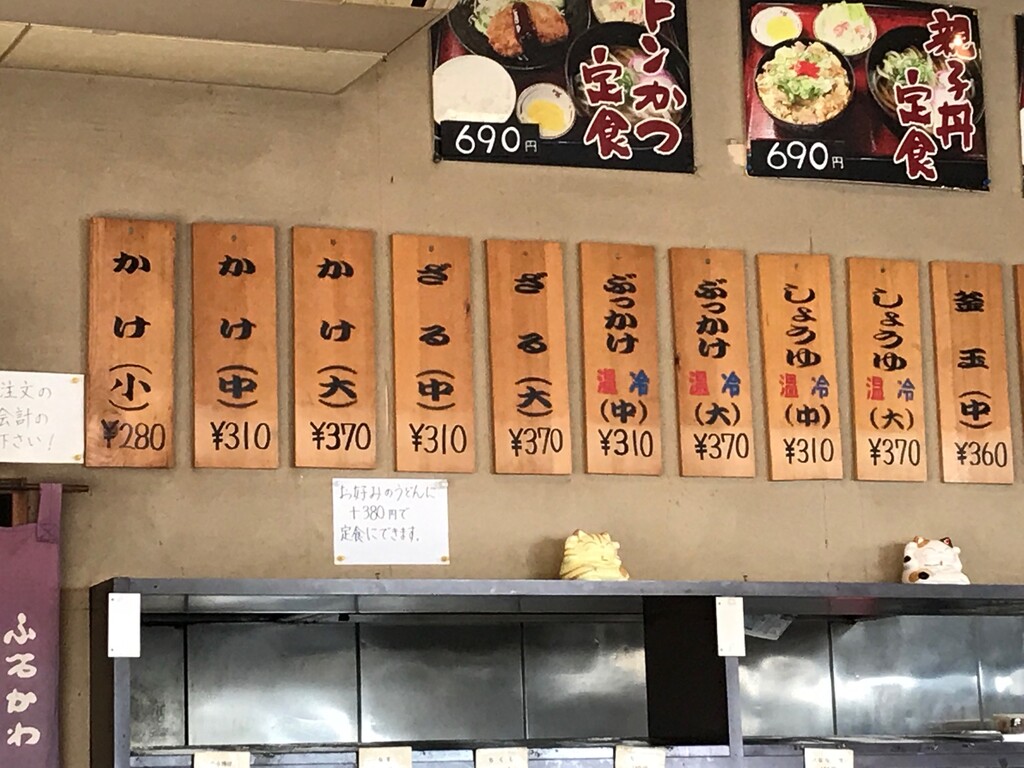 トンかつ
定食
690円
親子丼
定食
690円
かけ(小)
¥280
かけ(中)
¥310
かけ(大)
¥370
ざる(中)
¥310
ざる(大)
¥370
ぶっかけ
温 冷
(中)
¥310
ぶっかけ
温 冷
(大)
¥370
しょうゆ
温 冷
(中)
¥310
しょうゆ
温 冷
(大)
¥370
釜玉(中)
¥360
注文の
会計の
下さい!
お好みのうどんに
+380円で
定食にできます。
ふるかわ